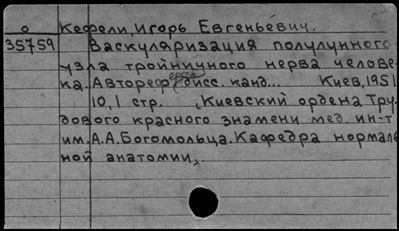 о Кефели, Игорь Евгеньевич.
35759 Васкуляризация полулунного
узла тройничного нерва челове-
ка. Автореферат дисс. канд... Киев, 1951
10,1 стр. , Киевский ордена Тру-
дового красного знамени мед. ин-т
им. А.А. Богомольца. Кафедра нормаль-
ной анатомии,.